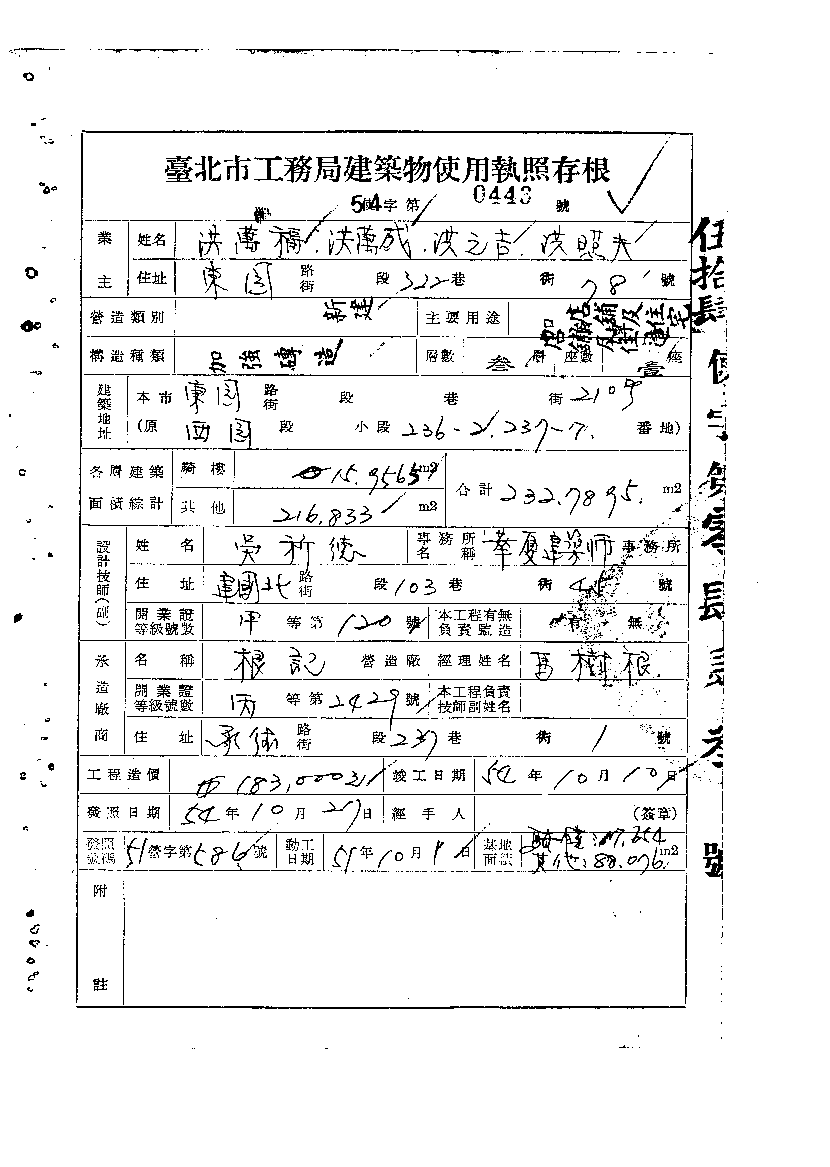 臺北市工務局建築物使用執照存根
54使字第 0443 號
業主 姓名 洪萬福.洪萬成.洪之吉.洪照夫
住址 東園 路街 段 322 巷 街 78 號
營造類別 新建 主要用途 店鋪及住宅
構造種類 加強磚造 層數 叁 層 座數 壹 座
建築地址 本市 東園 路街 段 巷 街 210號
(原 西園 段 小段 236-2.237-7. 番地)
各層建築面積綜計 騎樓 15.9565 m2 合計 232.7895. m2
其他 216.833 m2
設計技師(副) 姓名 吳祈德 事務所名稱 華夏建築師 事務所
住址 建國北 路街 段 103 巷 街 45 號
開業證等級號數 甲 等第 120 號 本工程有無負責監造 有 無
承造廠商 名稱 根記 營造廠 經理姓名 馬樹根
開業證等級號數 丙 等第 2429 號 本工程負責技師副姓名
住址 承德 路街 段 237 巷 街 1 號
工程造價 183,000 竣工日期 54 年 10 月 10 日
發照日期 54 年 10 月 27 日 經手人 (簽章)
發照號碼 51 營字第 586 號 動工日期 51 年 10 月 1 日 基地面積 騎樓:17.254 其他:88.076 m2
附註
伍拾肆使字第零肆肆叁號